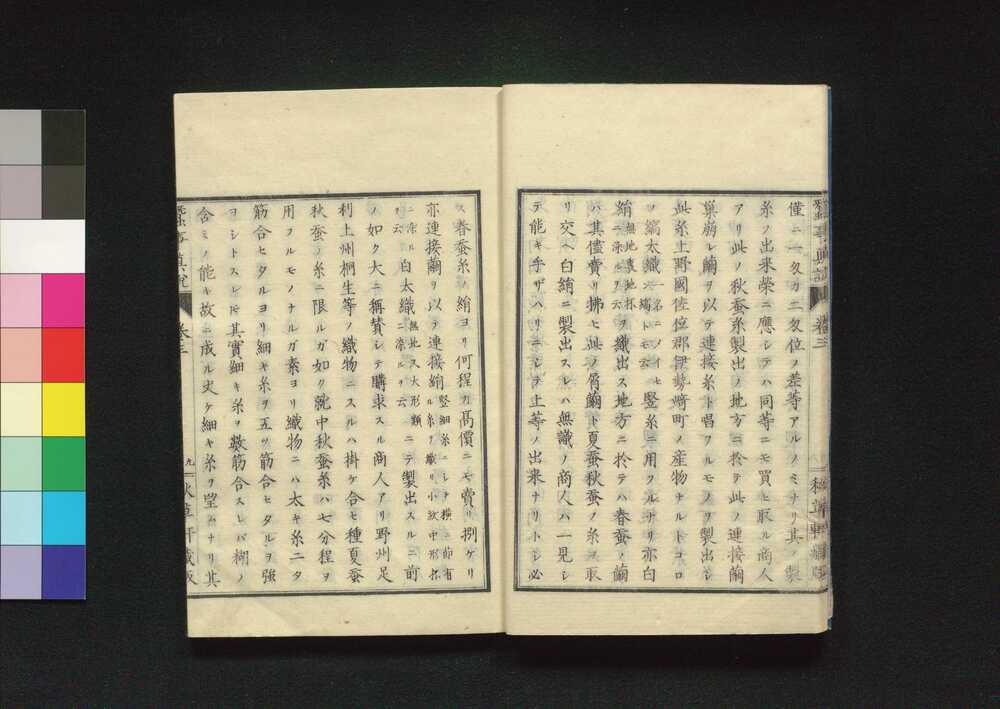 僅ニ一匁カ二匁位ノ差等アルノミナリ其ノ製
糸ノ出来榮ニ應シテハ同等ニモ買ヒ取ル商人
アリ此ノ秋蚕糸製出ノ地方ニ於テ此ノ連接繭
巣弱レ繭ヲ以テ連接糸ト唱フルモノヲ製出シ
此糸上野國佐位郡伊勢﨑町ノ産物ナルトコロ
ノ縞太織一名ニノイセ縞トモ云竪糸ニ用フルナリ亦白
絹ヲ織出ス地方ニ於テハ春蚕ノ繭
ハ其儘賣リ拂ヒ此ノ屑繭ト夏蚕秋蚕ノ糸ヲ取
リ交ヘ白絹ニ製出スレハ無識ノ商人ハ一見シ
テ能キ手ザハリニシテ上等ノ出来ナリトシ必
ス春蚕糸ノ絹ヨリ何程カ髙價ニモ賣リ捌ケリ
亦連接繭ヲ以テ連接絹竪細糸ニシテ横ニ節有ル糸ヲ織リ小紋中形
ニ染ルヲ云白太織無地又大形類ニ染ルヲ云ニテ製出スルニ前
ノ如ク大ニ稱賛シテ購求スル商人アリ野州足
利上州桐生等ノ織物ニスルハ掛ケ合セ種夏蚕
秋蚕ノ糸ニ限ルガ如ク就中秋蚕糸ハ七分程ヲ
用フルモノナルガ素ヨリ織物ニハ太キ糸ニタ
筋合ヒタルヨリ細キ糸ヲ五ツ筋合セタルヲ強
ヨシトスレ𪜈其實細キ糸ヲ数筋合スレバ糊ノ
含ミノ能キ故ニ成ル丈ケ細キ糸ヲ望ムナリ其
卷三
九